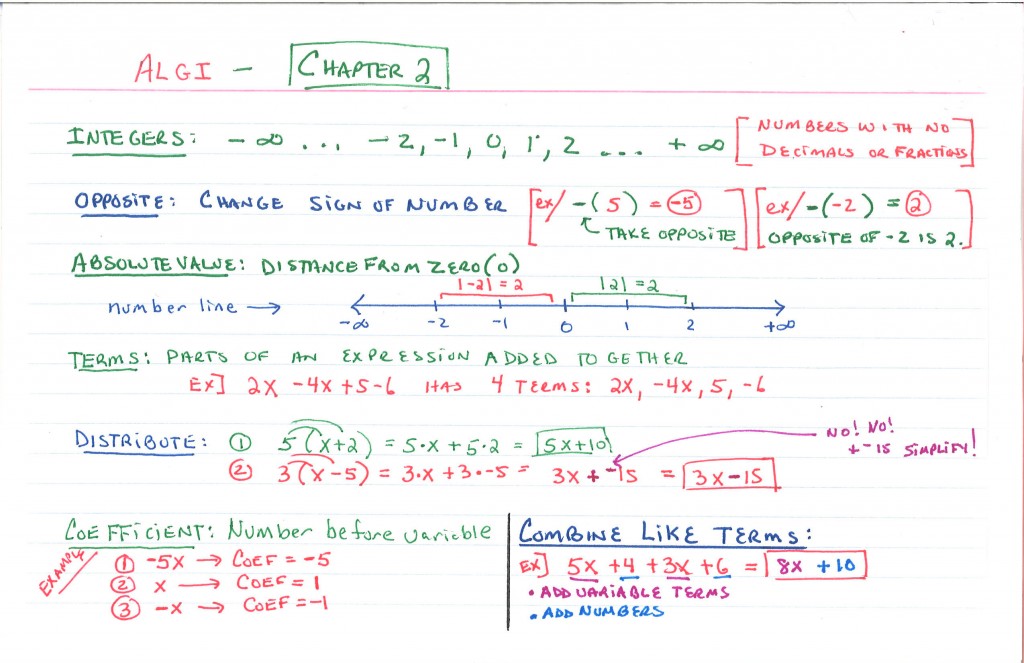 ALGI - CHAPTER 2
INTEGERS: -∞ ... -2, -1, 0, 1, 2 ... +∞ [NUMBERS WITH NO
DECIMALS OR FRACTIONS]
OPPOSITE: CHANGE SIGN OF NUMBER [ex/ -(5) = -5] [ex/ -(-2) = 2
TAKE OPPOSITE] OPPOSITE OF -2 IS 2.]
ABSOLUTE VALUE: DISTANCE FROM ZERO (0)
|-2| = 2 |2| = 2
number line →
-∞ -2 -1 0 1 2 +∞
TERMS: PARTS OF AN EXPRESSION ADDED TOGETHER
EX] 2X -4X +5 -6 HAS 4 TERMS: 2X, -4X, 5, -6
DISTRIBUTE: ① 5(X+2) = 5·X + 5·2 = 5X+10
NO! NO!
+ -15 SIMPLIFY!
② 3(X-5) = 3·X + 3·-5 = 3X + -15 = 3X-15
COEFFICIENT: Number before variable
EXAMPLE
① -5X → COEF = -5
② X → COEF = 1
③ -X → COEF = -1
COMBINE LIKE TERMS:
EX] 5X +4 +3X +6 = 8X +10
• ADD VARIABLE TERMS
• ADD NUMBERS